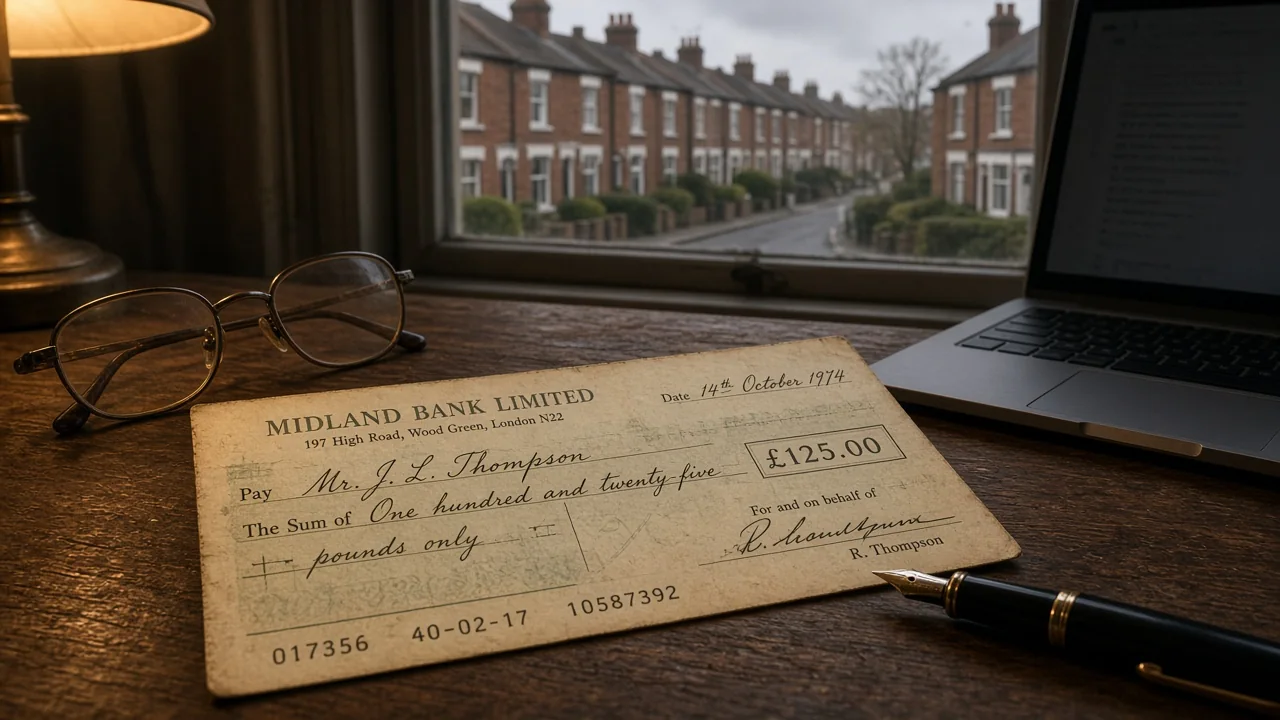 MIDLAND BANK LIMITED
197 High Road, Wood Green, London N22
Date 14th October 1974
Pay Mr. J. L. Thompson
£125.00
The Sum of One hundred and twenty five
pounds only
For and on behalf of
R. Thompson
017356 40-02-17 10587392